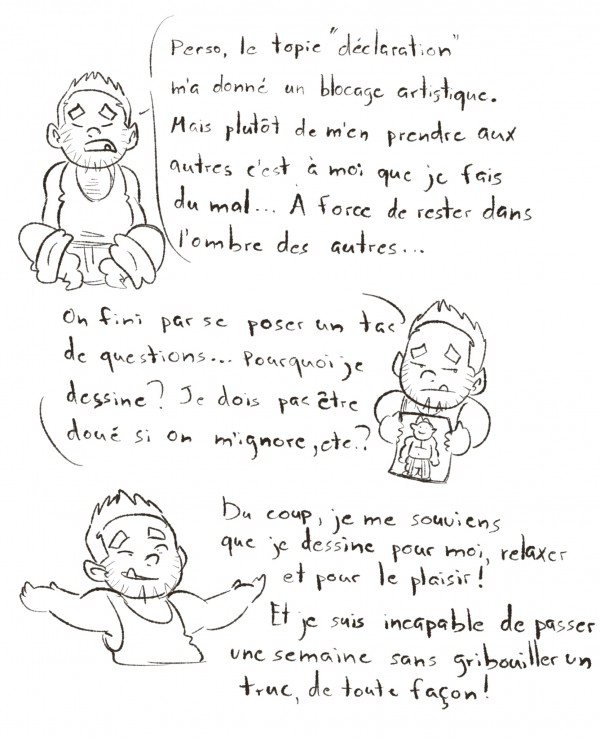 Perso, le topic "déclaration"
m'a donné un blocage artistique.
Mais plutôt de m'en prendre aux
autres c'est à moi que je fais
du mal... A force de rester dans
l'ombre des autres...
On fini par se poser un tas
de questions... Pourquoi je
dessine? Je dois pas être
doué si on m'ignore, etc.?
Du coup, je me souviens
que je dessine pour moi, relaxer
et pour le plaisir!
Et je suis incapable de passer
une semaine sans gribouiller un
truc, de toute façon!